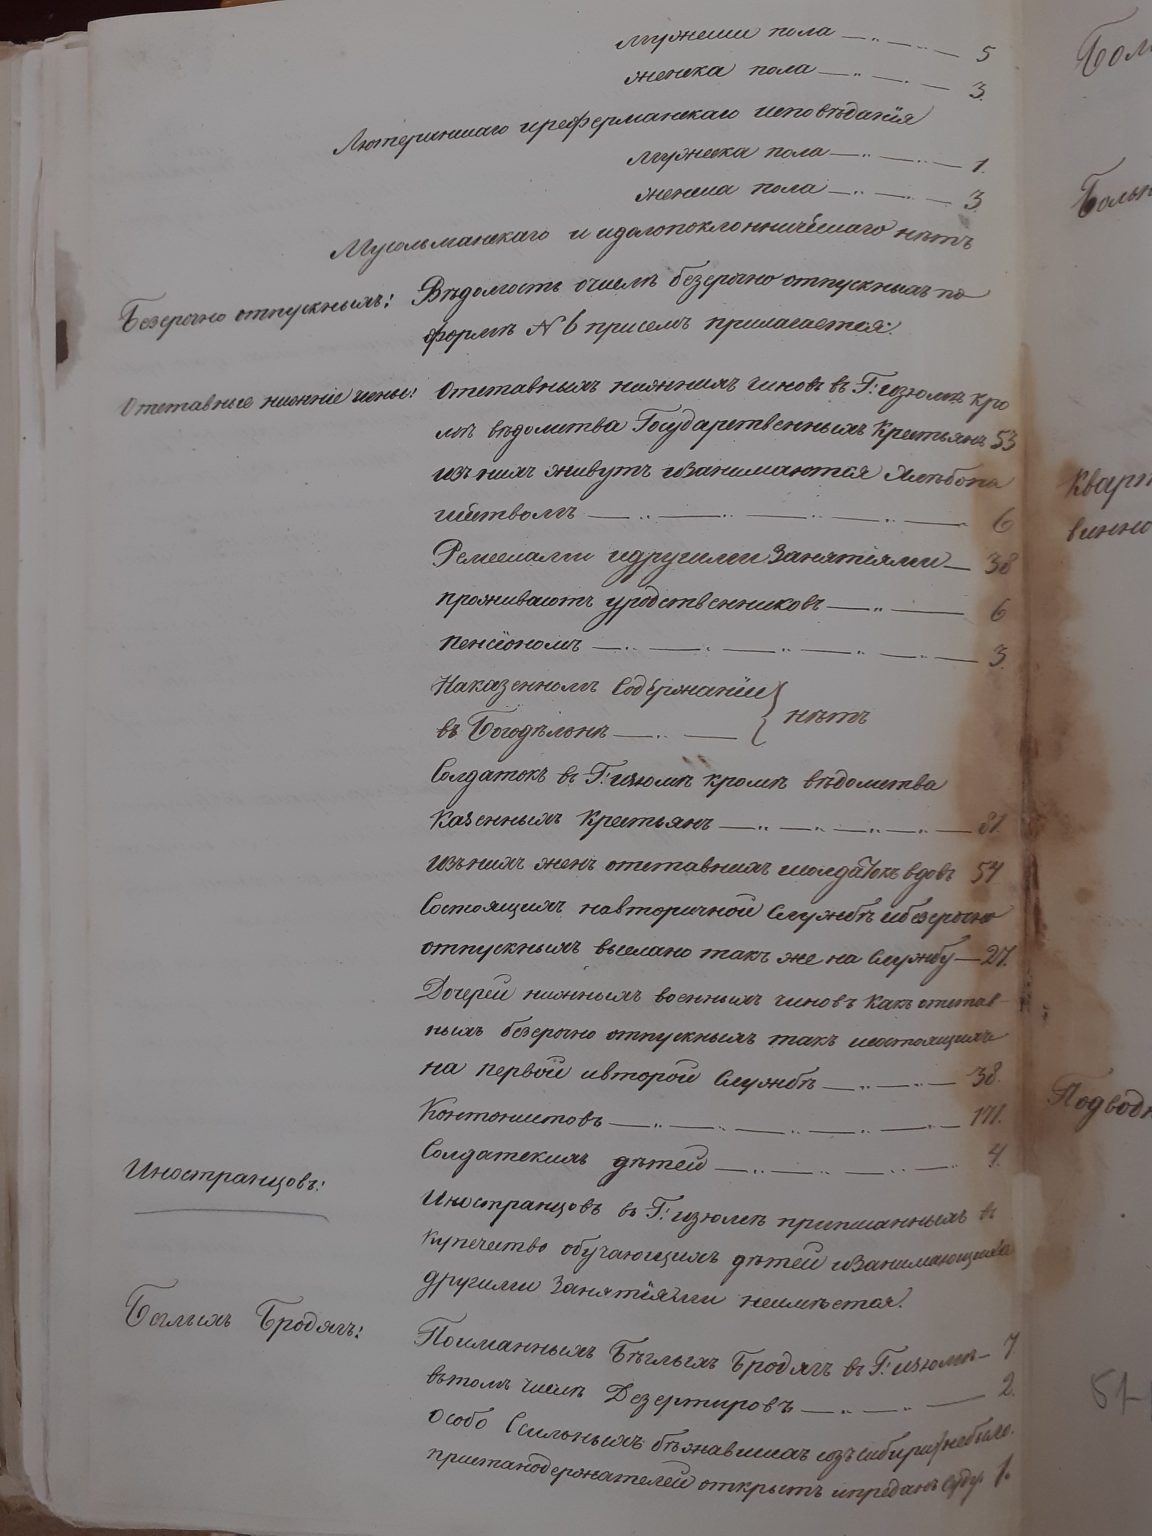 мужеска пола — „ — „ — 5
женска пола — „ — . — 3.
Лютеранскаго иреформанскаго исповѣданія
мужеска пола — „ — „ — 1.
женска пола — „ — „ — 3.
Мусольманскаго и идолопоклонническаго нѣтъ
Безсрочно отпускныхъ: Вѣдомость очислѣ безсрочно отпускныхъ по
формѣ № 6 присемъ прилагается.
Отставные нижніе чины: Отставныхъ нижнихъ чиновъ въ Г: изюмѣ кро
мѣ вѣдомства Государственныхъ Крестьянъ 53
изъ нихъ живутъ изанимаются Хлѣбопа
шествомъ — „ — „ — „ — „ — 6
Ремеслами идругими Занятіями — 38
проживаютъ уродственниковъ — „ — 6
пенсіономъ — „ — „ — „ — „ — 3.
Наказенномъ Содержаніи
въ Богодѣлонѣ — „ — } нѣтъ
Солдатокъ въ Г: изюмѣ кромѣ вѣдомства
Казенныхъ Крестьянъ — „ — „ — „ — „ — 81.
изъ нихъ женъ отставныхъ исолдатокъ вдовъ 54
Состоящихъ навторичной Службѣ ибезсрочно
отпускныхъ выслано такъ же на Службу — 27.
Дочерей нижныхъ военныхъ чиновъ Какъ отстав
ныхъ безсрочно отпускныхъ такъ исостоящихъ
на первой ивторой Службѣ — „ — „ — 38.
Контонистовъ — „ — „ — „ — „ — 171.
Солдатскихъ дѣтей — „ — „ — „ — 4.
Иностранцовъ: Иностранцовъ въ Г: изюмѣ приписанныхъ въ
купечество обучающихъ дѣтей изанимающихся
другими Занятіями неимѣется.
Бѣглыхъ Бродягъ: Поиманныхъ Бѣглыхъ Бродягъ въ Г: изюмѣ — 7
вътомъ числѣ Дезертировъ — „ — „ — 2.
особо Ссыльныхъ бѣжавшихъ изъ сибири небыло.
пристанодержателей открытъ ипреданъ суду 1.
Больн
Кварт
винно
Подводн